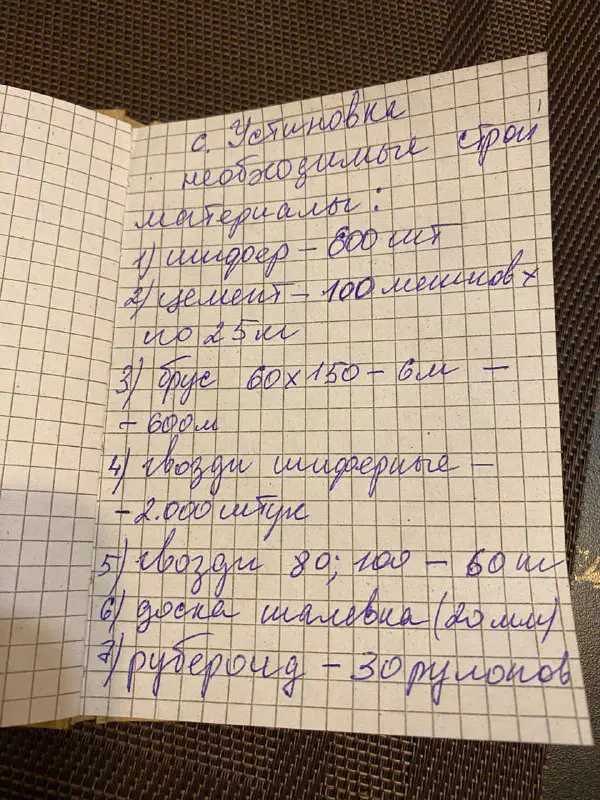 с. Установка
необходимые строй
материалы:
1) шифер – 600 шт
2) цемент – 100 мешков х
по 25 кг
3) брус 60х150 – 6м –
– 600м
4) гвозди шиферные –
– 2.000 штук
5) гвозди 80; 100 – 60 кг
6) доска шалевка (20 мм)
7) рубероид – 30 рулонов